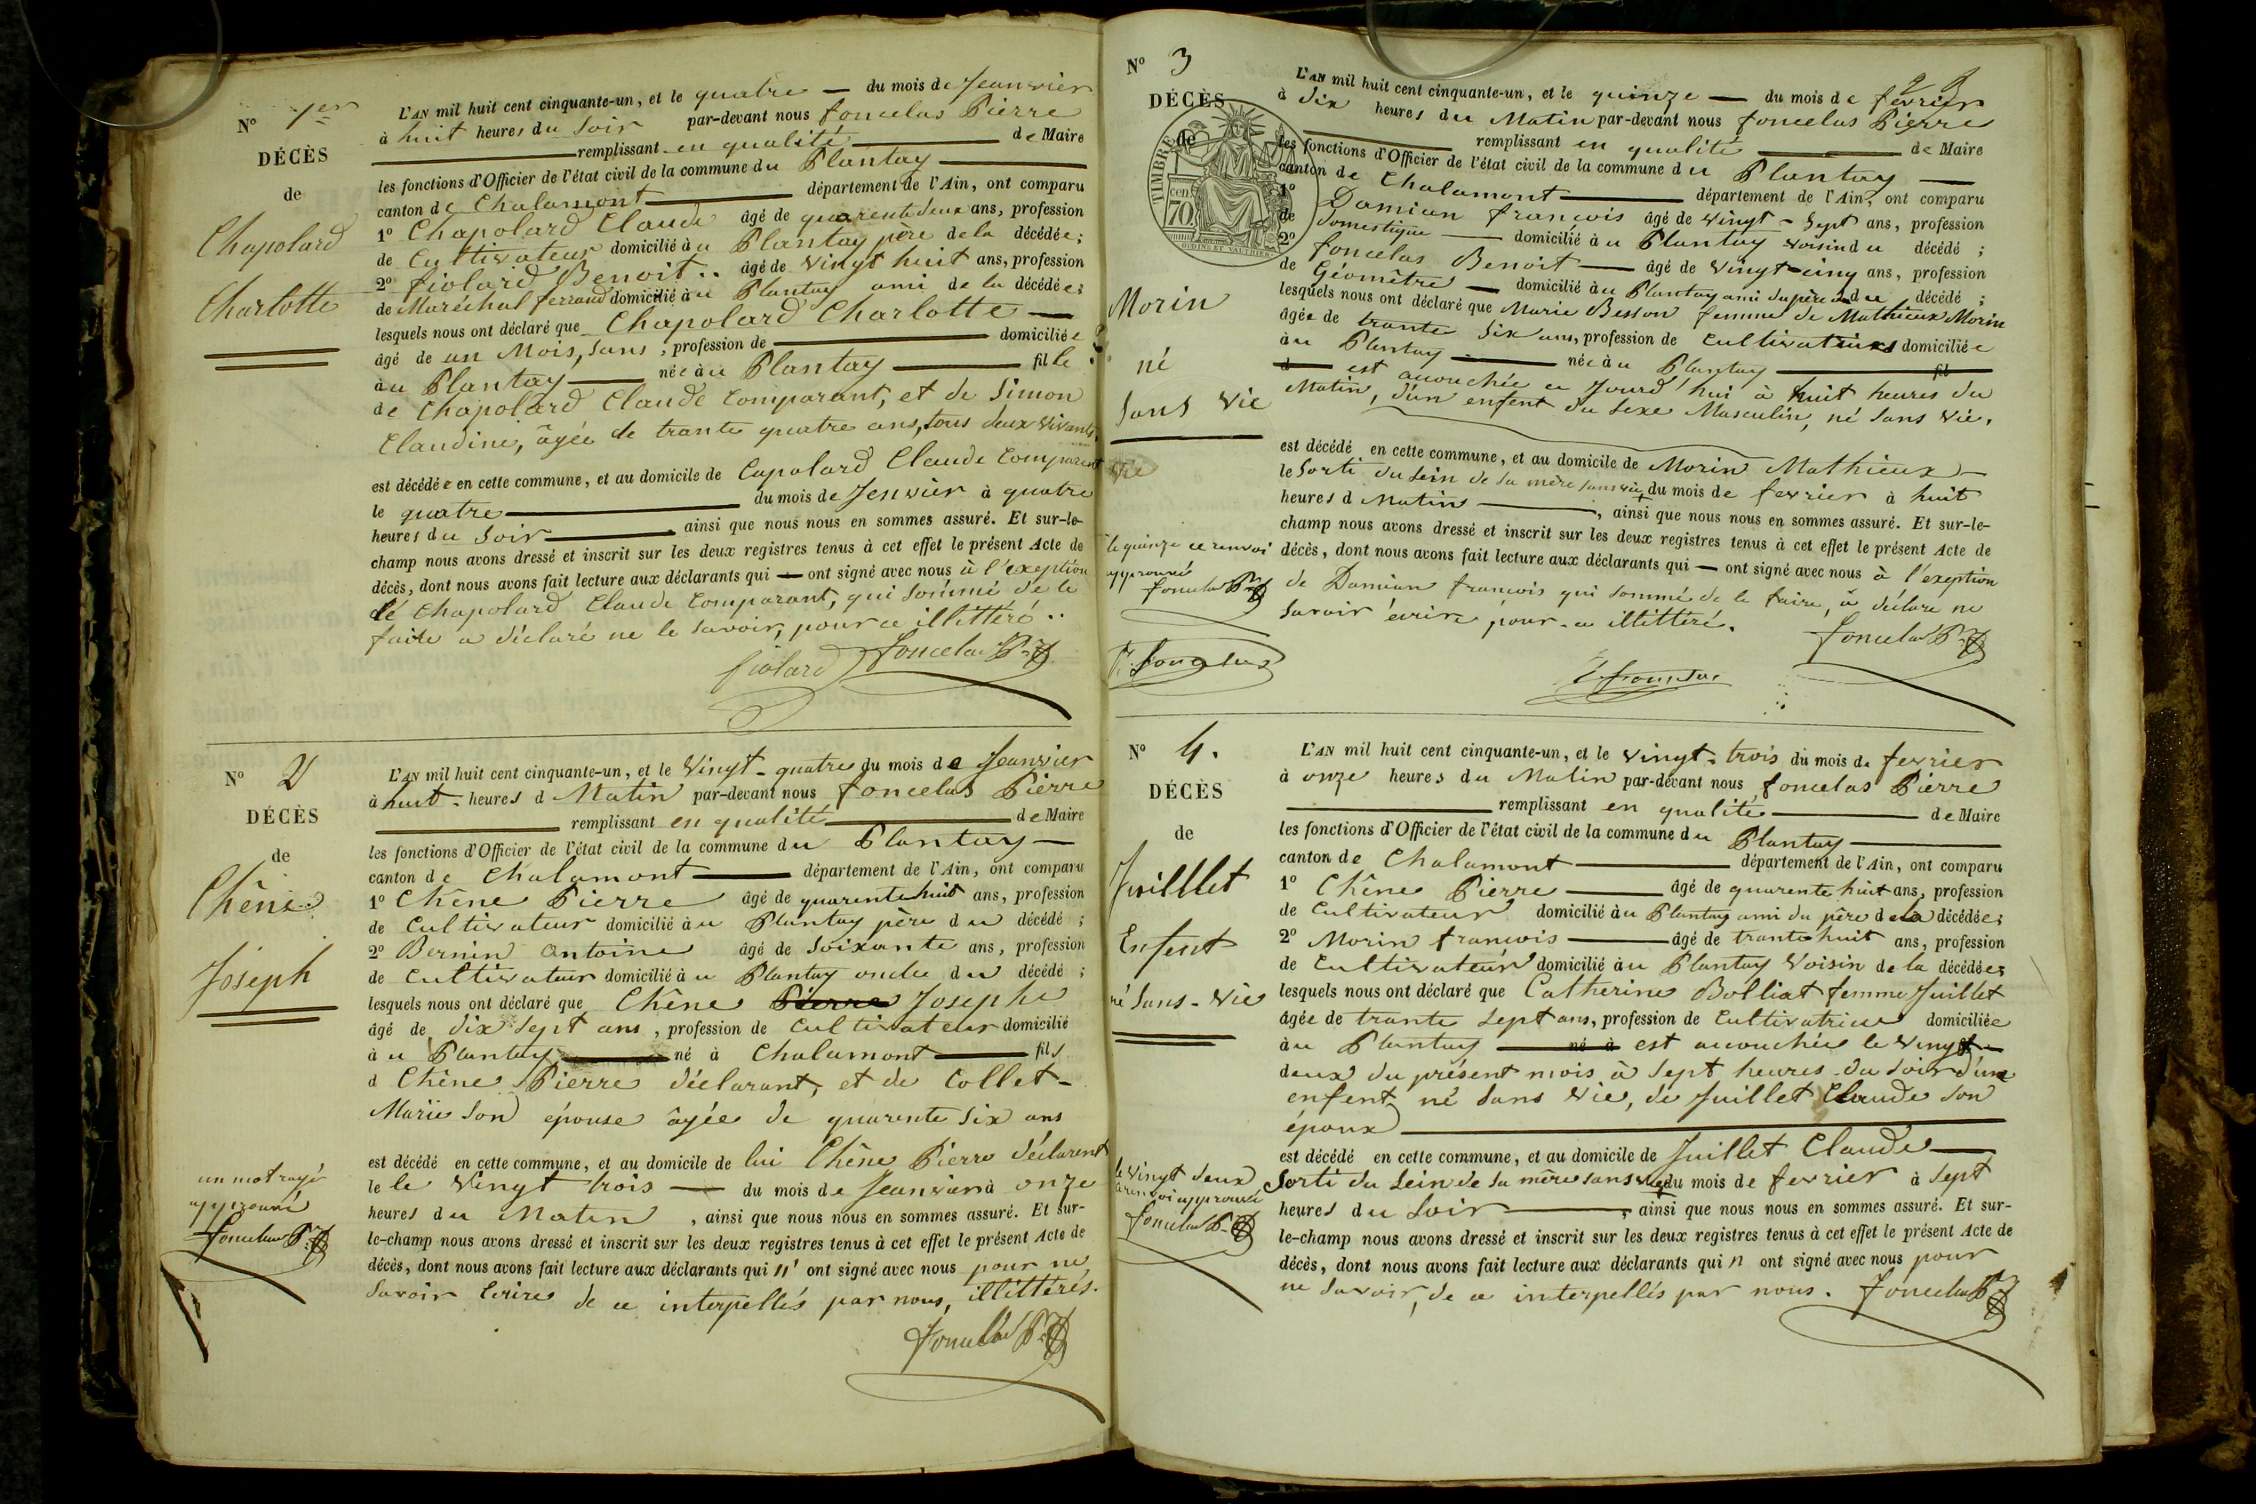 N° 1er
DÉCÈS
de
Chapolard
Charlotte
L'AN mil huit cent cinquante-un, et le quatre — du mois de Jeanvier
à huit heures du Soir par-devant nous foncelas Pierre
remplissant en qualité de Maire
les fonctions d'Officier de l'état civil de la commune du Plantay
canton de Chalamont département de l'Ain, ont comparu
1° Chapolard Claude âgé de quarente deux ans, profession
de Cultivateur domicilié au Plantay père de la décédée;
2° fiolard Benoit .. âgé de vingt huit ans, profession
de Maréchal ferrand domicilié au Plantay ami de la décédée;
lesquels nous ont déclaré que Chapolard Charlotte —
âgé de un Mois, Sans, profession de domiciliée
au Plantay née au Plantay fille
de Chapolard Claude Comparant, et de Simon
Claudine, âgée de trante quatre ans, tous deux vivants.
est décédée en cette commune, et au domicile de Capolard Claude Comparent
le quatre du mois de Jenvier à quatre
heures du Soir ainsi que nous nous en sommes assuré. Et sur-le-
champ nous avons dressé et inscrit sur les deux registres tenus à cet effet le présent Acte de
décès, dont nous avons fait lecture aux déclarants qui — ont signé avec nous à l'exeption
dé Chapolard Claude Comparant, qui sommé de le
faite a déclaré ne le savoir, pour ce illittéré ..
fiolard foncelas P.
N° 2
DÉCÈS
de
Chêne
Joseph
un mot rayé
approuvé
foncelas P.
L'AN mil huit cent cinquante-un, et le Vingt-quatre du mois de Jeanvier
à huit - heures d Matin par-devant nous foncelas Pierre
remplissant en qualité de Maire
les fonctions d'Officier de l'état civil de la commune du Plantay —
canton de Chalamont département de l'Ain, ont comparu
1° Chêne Pierre âgé de quarente huit ans, profession
de Cultivateur domicilié au Plantay père du décédé ;
2° Bernin Antoine âgé de Soixante ans, profession
de Cultivateur domicilié au Plantay oncle du décédé ;
lesquels nous ont déclaré que Chêne Pierre Josephe
âgé de dix sept ans, profession de Cultivateur domicilié
au Plantay né à Chalamont fils
d Chêne Pierre déclarant, et de Collet-
Marie Son épouse âgée de quarente Six ans
est décédé en cette commune, et au domicile de lui Chêne Pierre déclarent
le le Vingt trois — du mois de Jeanvier à onze
heures du Matin, ainsi que nous nous en sommes assuré. Et sur-
le-champ nous avons dressé et inscrit sur les deux registres tenus à cet effet le présent Acte de
décès, dont nous avons fait lecture aux déclarants qui n' ont signé avec nous pour ne
Savoir Ecrire de ce interpellés par nous, illittérés.
foncelas P.
N° 3
DÉCÈS
de
TIMBRE
cen
70
OUDINÉ ET VAUTHIER
Morin
né
Sans Vie
Vie
le quinze ce renvoi
approuvé
foncelas P.
B. foncelas
L'AN mil huit cent cinquante-un, et le quinze — du mois de fevrier
à dix heures du Matin par-devant nous foncelas Pierre
remplissant en qualité de Maire
les fonctions d'Officier de l'état civil de la commune du Plantay —
canton de Chalamont département de l'Ain, ont comparu
1° Damian françois âgé de vingt-Sept ans, profession
de Domestique domicilié au Plantay voisin du décédé ;
2° foncelas Benoit — âgé de vingt cinq ans, profession
de Géomêtre — domicilié au Plantay ami du père du décédé ;
lesquels nous ont déclaré que Marie Besson femme de Mathieux Morin
âgée de trante Six ans, profession de cultivatrice domiciliée
au Plantay née au Plantay fil
d est accouchée ce Jourd'hui à huit heures du
Matin, d'un enfent du Sexe Masculin, né Sans Vie.
est décédé en cette commune, et au domicile de Morin Mathieux —
le Sorti du Sein de Sa mère sans vie du mois de fevrier à huit
heures d Matins, ainsi que nous nous en sommes assuré. Et sur-le-
champ nous avons dressé et inscrit sur les deux registres tenus à cet effet le présent Acte de
décès, dont nous avons fait lecture aux déclarants qui — ont signé avec nous à l'exeption
de Damian françois qui sommé de le faire, à déclare ne
Savoir écrire, pour ce illittéré.
foncelas P.
B foncelas
N° 4.
DÉCÈS
de
Juilllet
Enfent
né Sans-Vie
le Vingt deux
ce renvoi approuvé
foncelas P.
L'AN mil huit cent cinquante-un, et le vingt-trois du mois de fevrier
à onze heures du Matin par-devant nous foncelas Pierre
remplissant en qualité de Maire
les fonctions d'Officier de l'état civil de la commune du Plantay
canton de Chalamont département de l'Ain, ont comparu
1° Chêne Pierre âgé de quarente huit ans, profession
de Cultivateur domicilié au Plantay ami du père de la décédée;
2° Morin francois âgé de trante huit ans, profession
de Cultivateur domicilié au Plantay Voisin de la décédée;
lesquels nous ont déclaré que Catherine Bolliat femme Juillet
âgée de trante Sept ans, profession de Cultivatrice domiciliée
au Plantay né à est accouchée le Vingt-
deux du présent mois à Sept heures du Soir d'un
enfent né Sans Vie, de Juillet Claude Son
époux
est décédé en cette commune, et au domicile de Juillet Claude —
Sorti du Sein de Sa mère sans vie du mois de fevrier à Sept
heures du Soir, ainsi que nous nous en sommes assuré. Et sur-
le-champ nous avons dressé et inscrit sur les deux registres tenus à cet effet le présent Acte de
décès, dont nous avons fait lecture aux déclarants qui n ont signé avec nous pour
ne Savoir, de ce interpellés par nous. foncelas P.